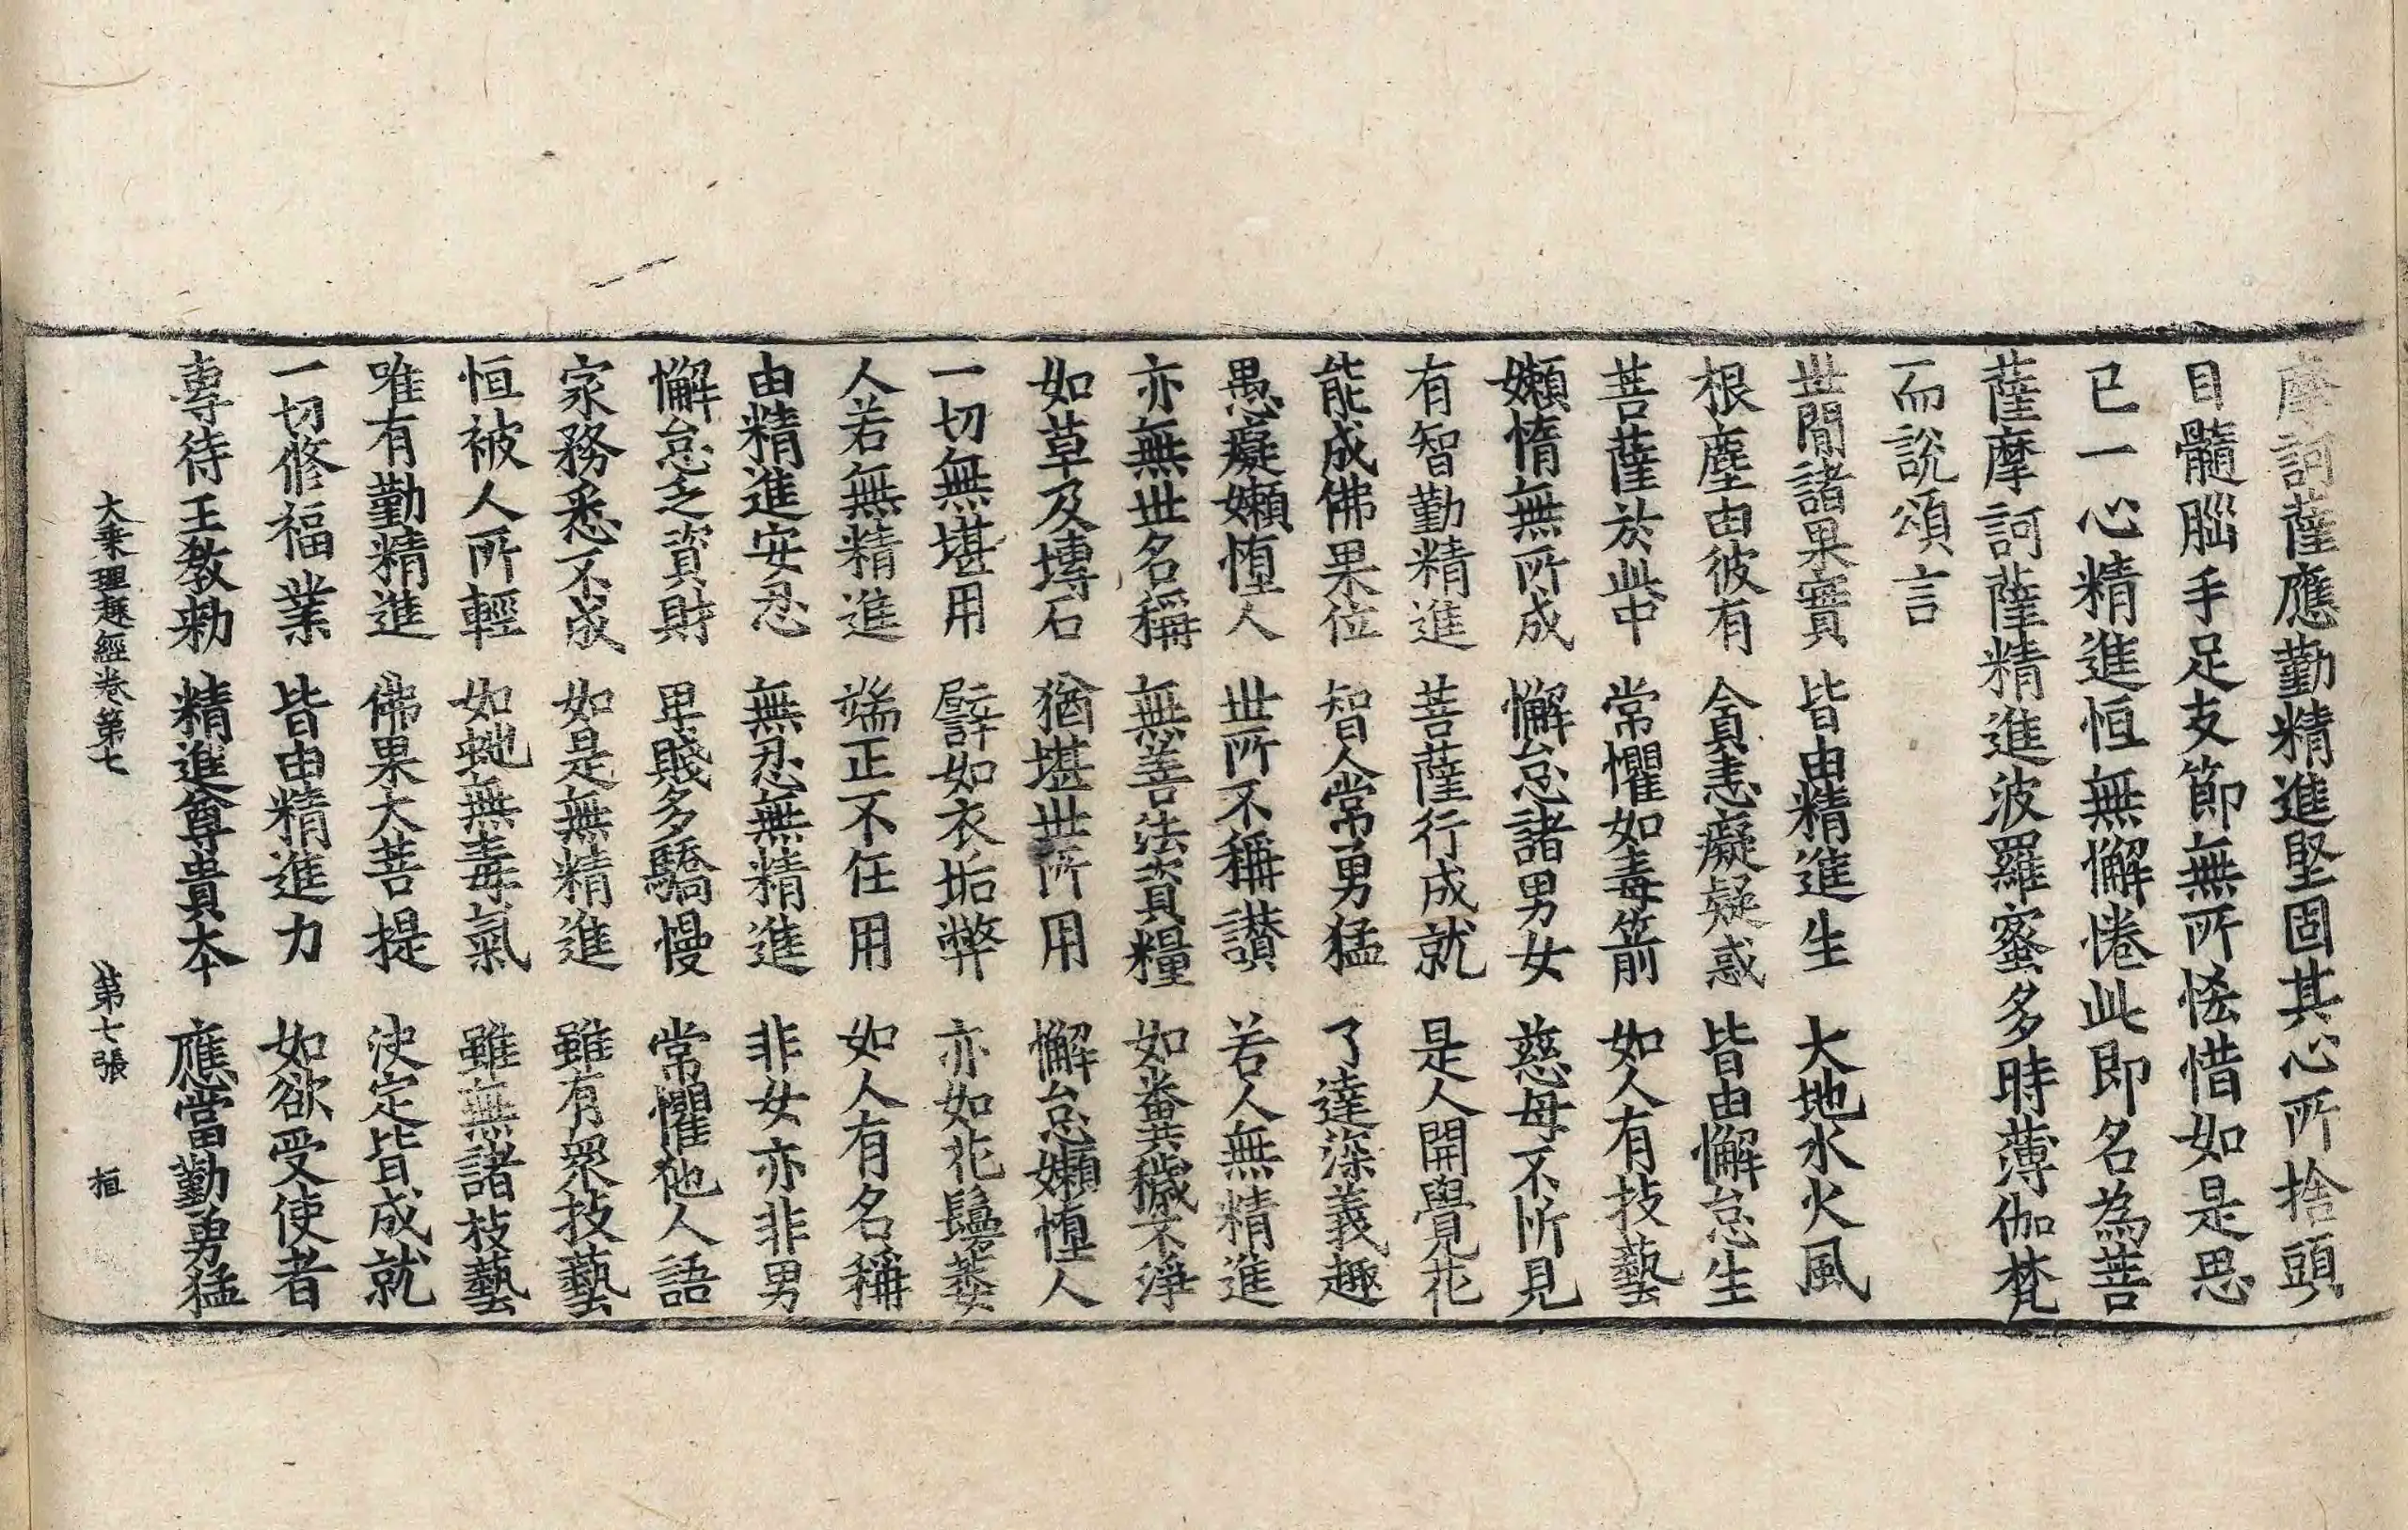 摩訶薩應勤精進堅固其心所捨頭
目髓腦手足支節無所悋惜如是思
已一心精進恒無懈惓此即名為菩
薩摩訶薩精進波羅蜜多時薄伽梵
而說頌言
世間諸果實 皆由精進生 大地水火風
根塵由彼有 貪恚癡疑惑 皆由懈怠生
菩薩於此中 常懼如毒箭 如人有技藝
嬾惰無所成 懈怠諸男女 慈母不所見
有智勤精進 菩薩行成就 是人開覺花
能成佛果位 智人常勇猛 了達深義趣
愚癡嬾憜人 世所不稱讃 若人無精進
亦無世名稱 無善法資糧 如糞穢不淨
如草及塼石 猶堪世所用 懈怠嬾憜人
一切無堪用 譬如衣垢弊 亦如花鬘萎
人若無精進 端正不任用 如人有名稱
由精進安忍 無忍無精進 非女亦非男
懈怠乏資財 卑賤多驕慢 常懼他人語
家務悉不成 如是無精進 雖有眾技藝
恒被人所輕 如虵無毒氣 雖無諸技藝
唯有勤精進 佛果大菩提 決定皆成就
一切修福業 皆由精進力 如欲受使者
專待王教勅 精進尊貴本 應當勤勇猛
大乘理趣經卷第七 第七張 桓